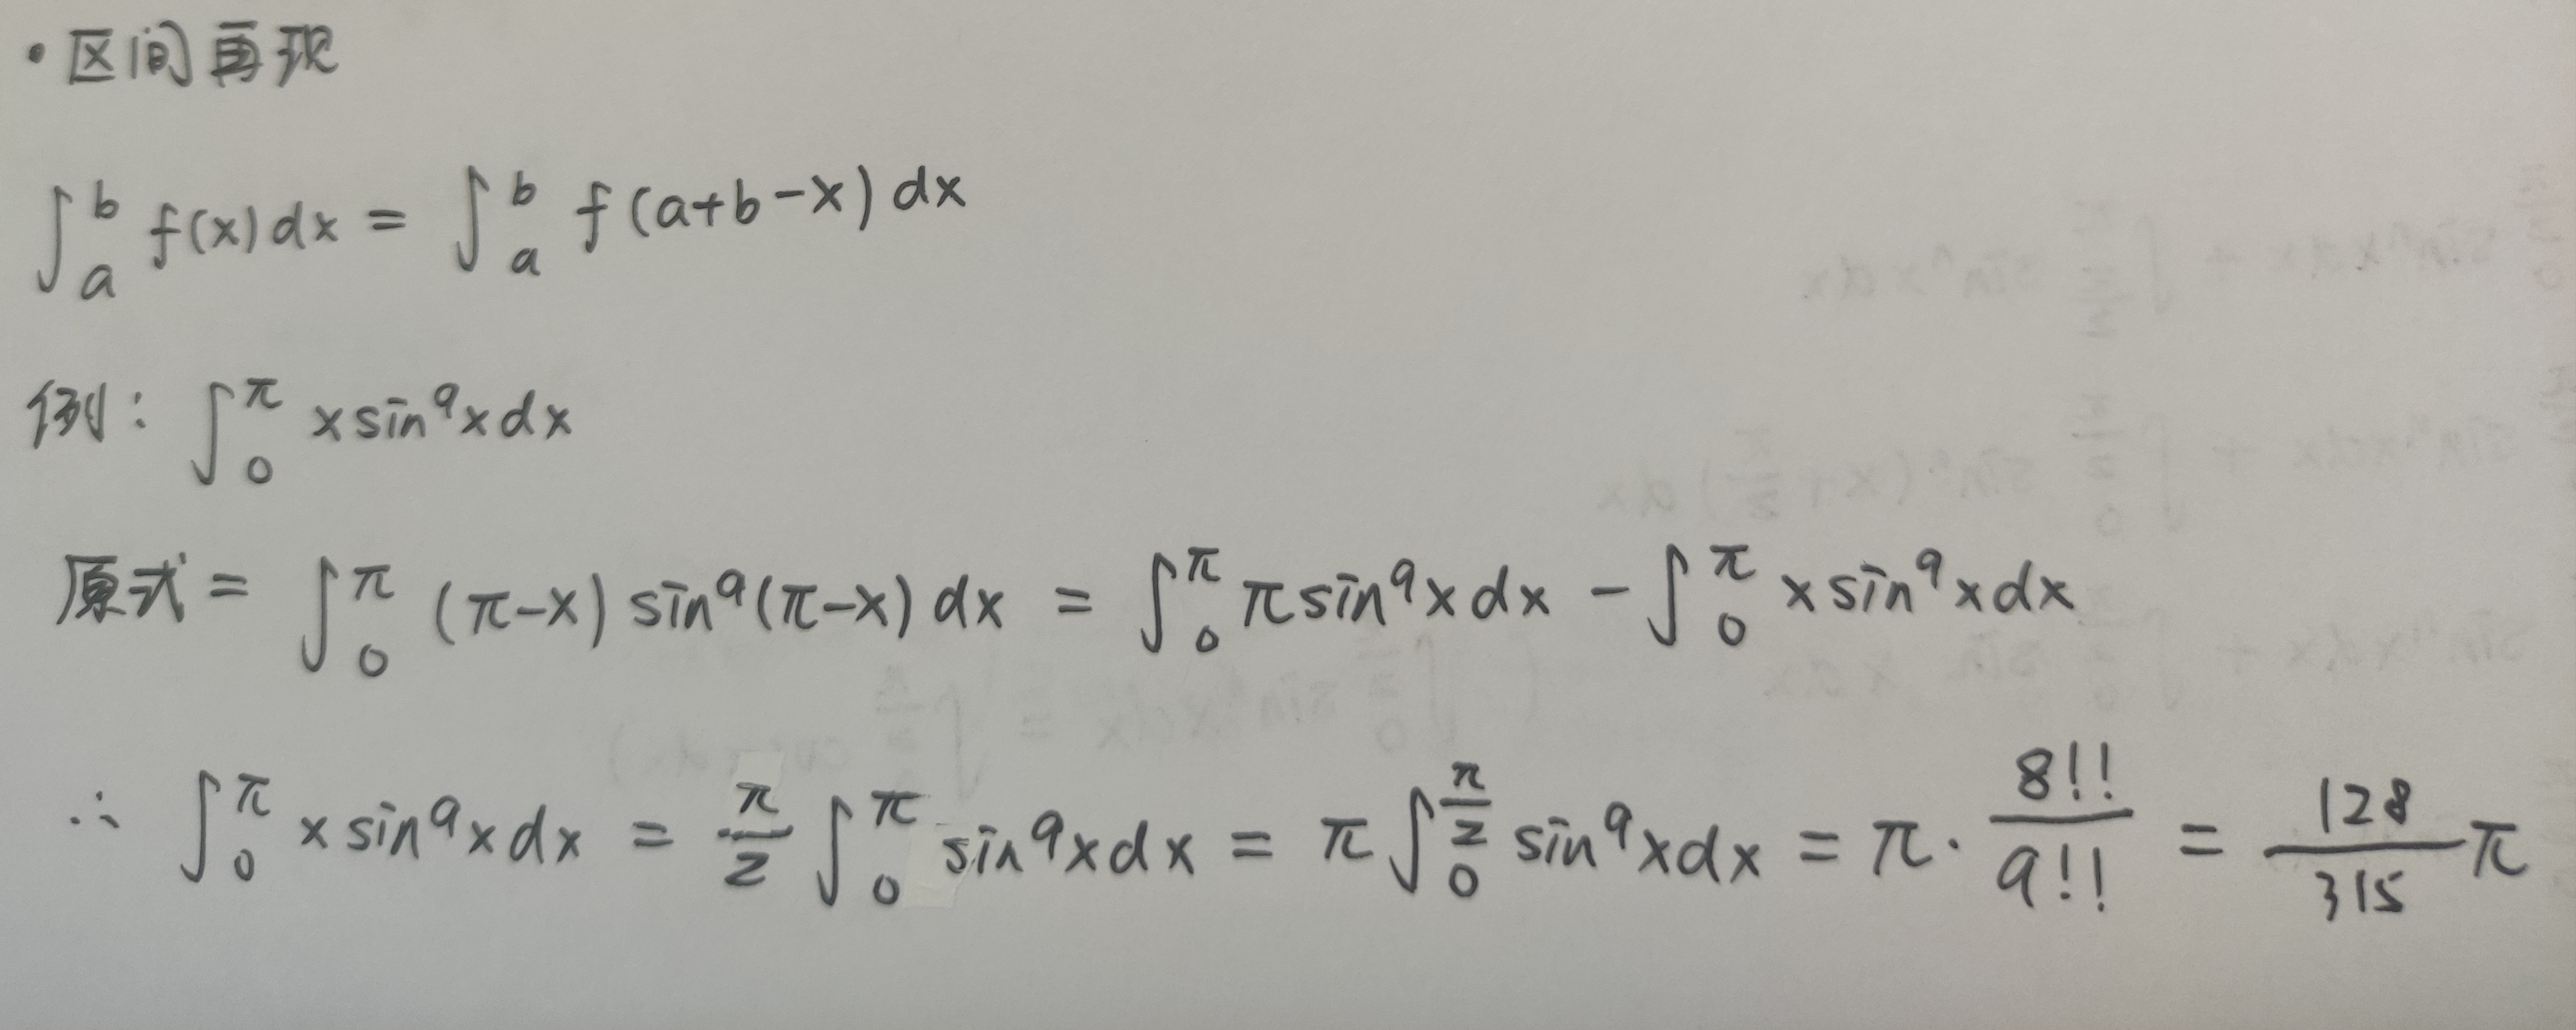 ・区间再现
∫_a^b f(x)dx = ∫_a^b f(a+b-x)dx
例: ∫_0^π x sin⁹x dx
原式 = ∫_0^π (π-x) sin⁹(π-x) dx = ∫_0^π π sin⁹x dx - ∫_0^π x sin⁹x dx
∴ ∫_0^π x sin⁹x dx = π/2 ∫_0^π sin⁹x dx = π ∫_0^{π/2} sin⁹x dx = π · 8!!/9!! = 128/315 π